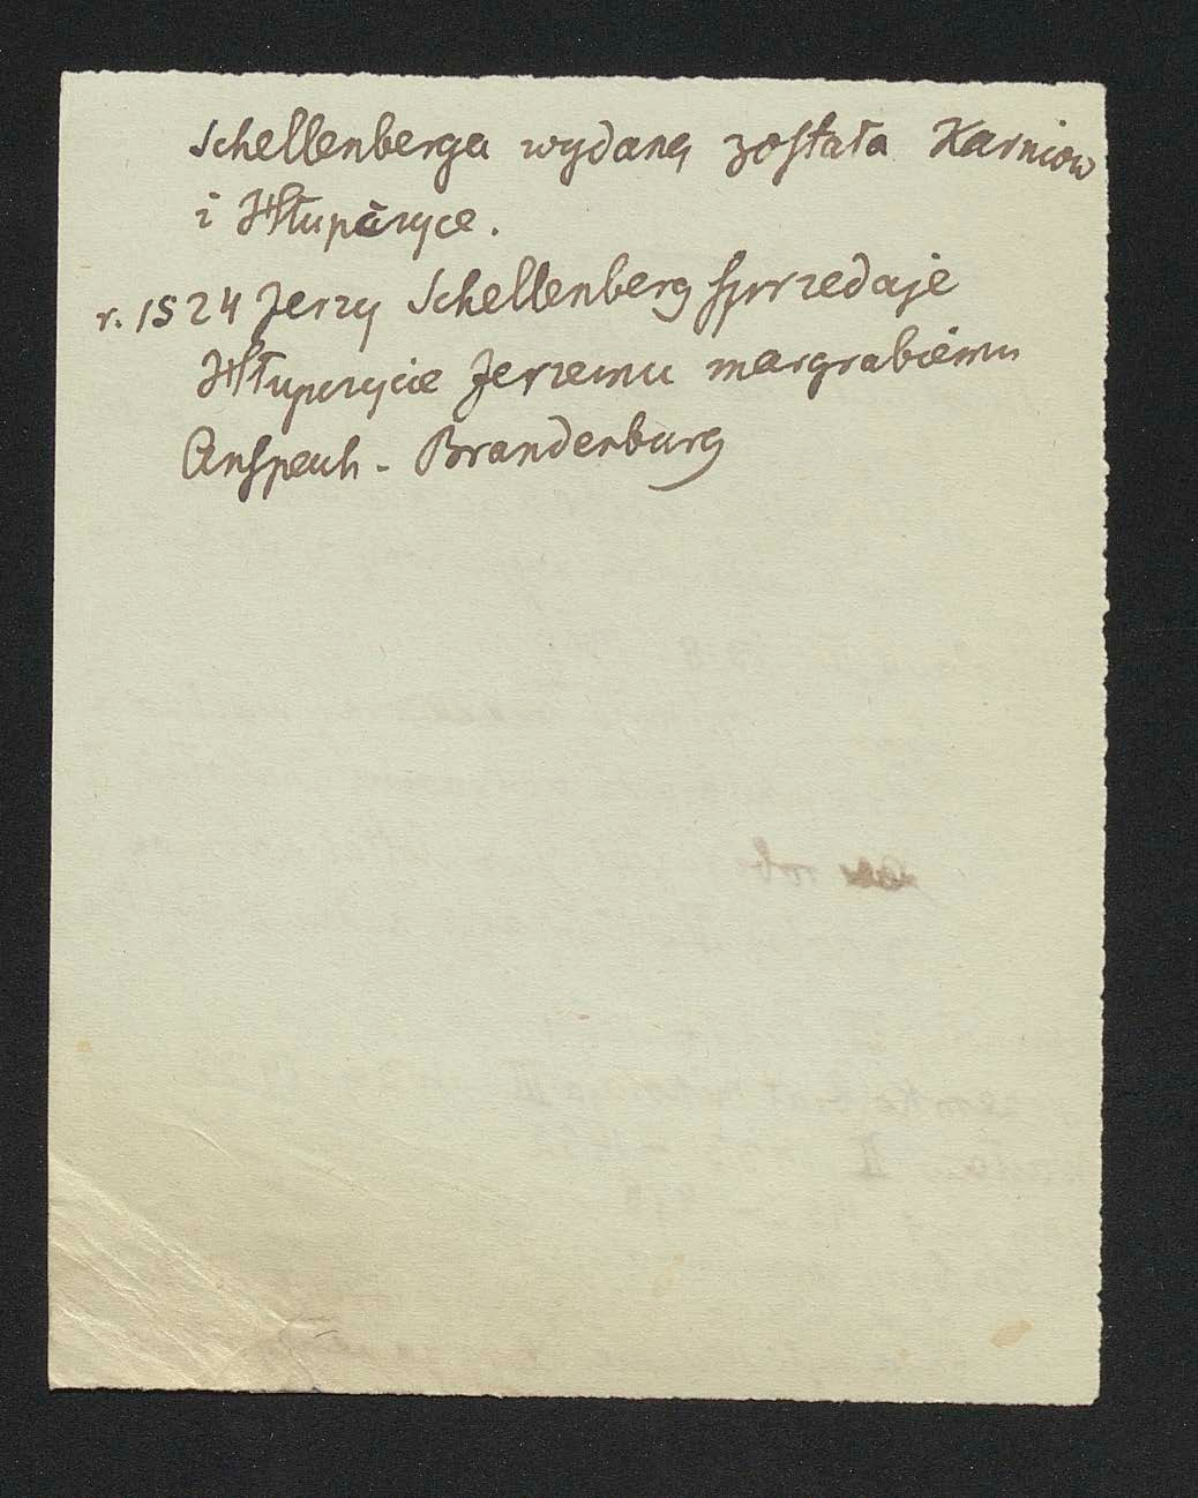 Schellenberga wydaną została Karniow
i Hłupczyce.
r. 1524 Jerzy Schellenberg sprzedaje
Hłupczycie Jerzemu margrabiemu
Anspach - Brandenburg